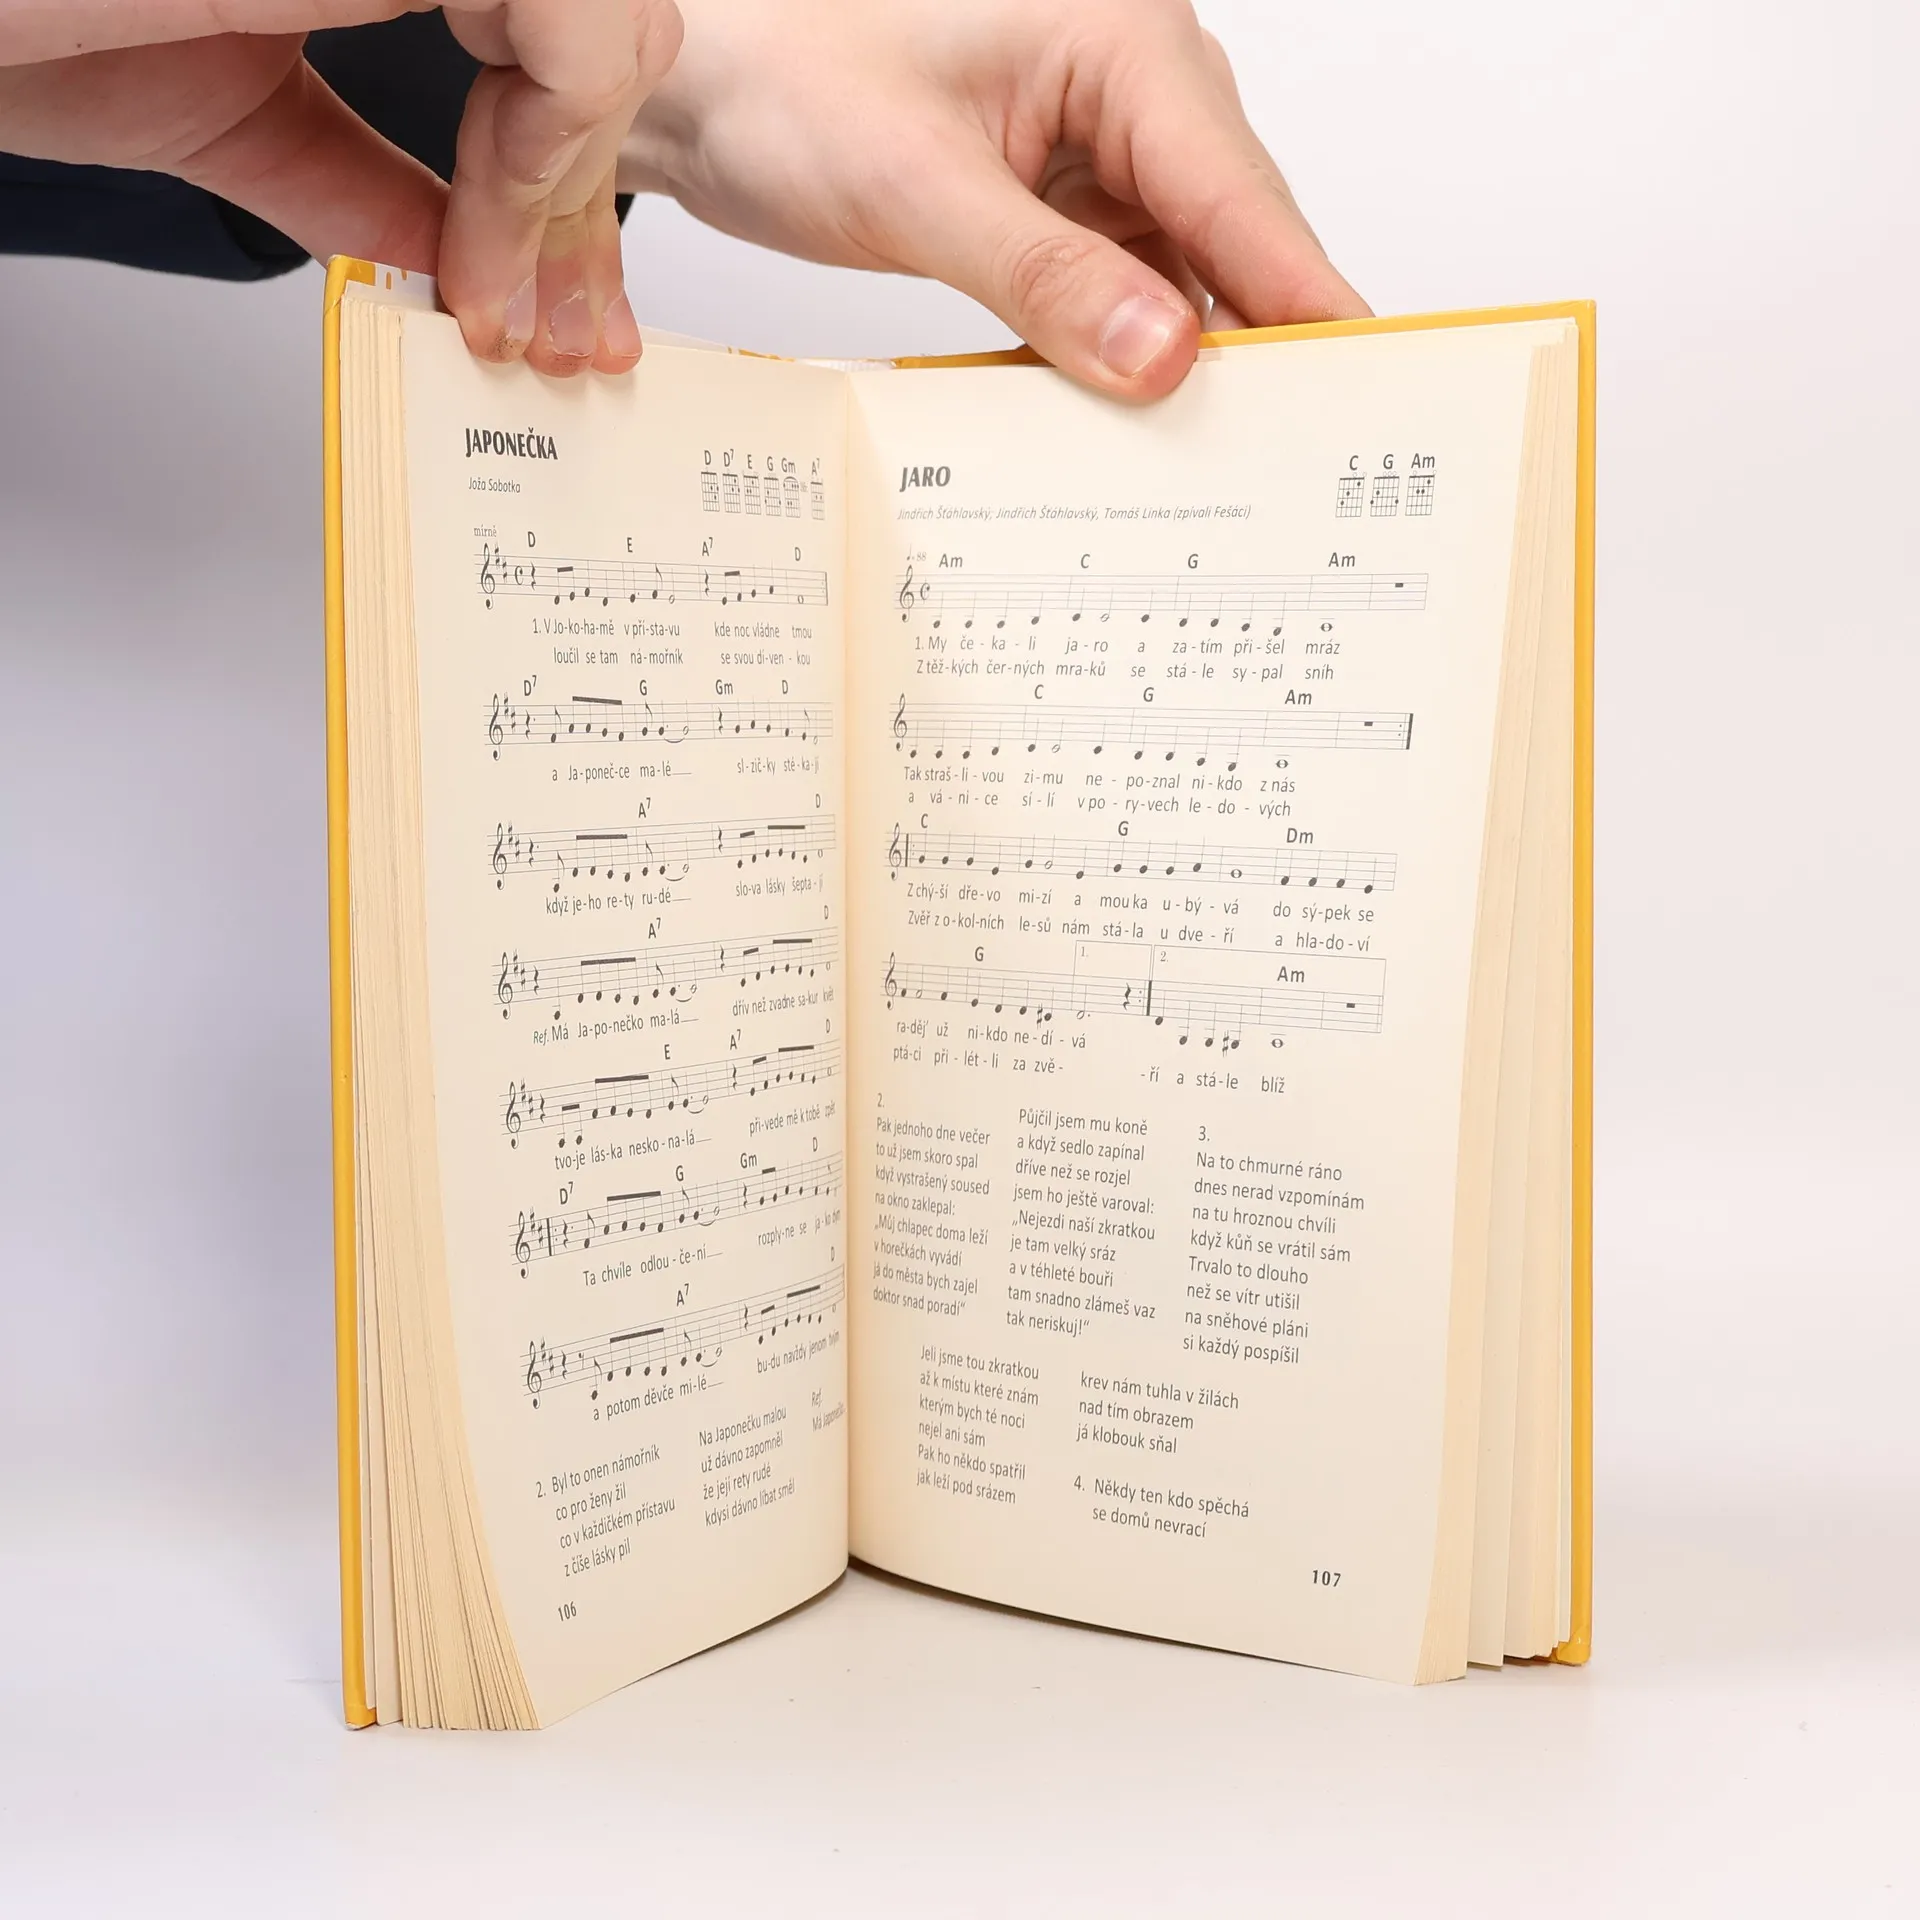 JAPONEČKA
Joža Sobotka
D D7 E G Gm A7
mírně
D E A7 D
1. V Jo-ko-ha-mě v pří-sta-vu kde noc vládne tmou
loučil se tam ná-mořník se svou dí-ven-kou
D7 G Gm D
a Ja-poneč-ce ma-lé slzič-ky sté-ka-jí
A7 D
když je-ho re-ty ru-dé slo-va lásky šepta-jí
A7 D
Ref. Má Ja-po-nečko ma-lá dřív než zvadne sa-kur květ
E A7 D
tvo-je lás-ka nesko-na-lá při-vede mě k tobě zpět
D7 G Gm D
Ta chvíle odlou-če-ní rozply-ne se ja-ko dým
A7 D
a potom děvče mi-lé bu-du navždy jenom tvým
2. Byl to onen námořník
co pro ženy žil
co v každičkém přístavu
z číše lásky pil
Na Japonečku malou
už dávno zapomněl
že její rety rudé
kdysi dávno líbat směl
Ref.
Má Japonečko
106
JARO
Jindřich Šťáhlavský; Jindřich Šťáhlavský, Tomáš Linka (zpívali Fešáci)
C G Am
♩=88
Am C G Am
1. My če-ka-li ja-ro a za-tím při-šel mráz
Z těž-kých čer-ných mra-ků se stá-le sy-pal sníh
C G Am
Tak straš-li-vou zi-mu ne-po-znal ni-kdo z nás
a vá-ni-ce sí-lí v po-ry-vech le-do-vých
C G Dm
Z chý-ší dře-vo mi-zí a mou ka u-bý-vá do sý-pek se
Zvěř z o-kol-ních le-sů nám stá-la u dve-ří a hla-do-ví
G 1. 2. Am
ra-děj' už ni-kdo ne-dí-vá
ptá-ci při-lét-li za zvě- -ří a stá-le blíž
2.
Pak jednoho dne večer
to už jsem skoro spal
když vystrašený soused
na okno zaklepal:
„Můj chlapec doma leží
v horečkách vyvádí
já do města bych zajel
doktor snad poradí“
Půjčil jsem mu koně
a když sedlo zapínal
dříve než se rozjel
jsem ho ještě varoval:
„Nejezdi naší zkratkou
je tam velký sráz
a v téhleté bouři
tam snadno zlámeš vaz
tak neriskuj!“
3.
Na to chmurné ráno
dnes nerad vzpomínám
na tu hroznou chvíli
když kůň se vrátil sám
Trvalo to dlouho
než se vítr utišil
na sněhové pláni
si každý pospíšil
Jeli jsme tou zkratkou
až k místu které znám
kterým bych té noci
nejel ani sám
Pak ho někdo spatřil
jak leží pod srázem
krev nám tuhla v žilách
nad tím obrazem
já klobouk sňal
4. Někdy ten kdo spěchá
se domů nevrací
107